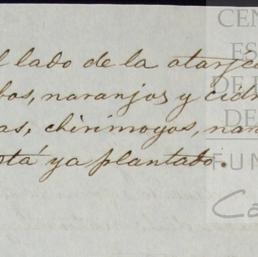 l lado de la atarje
bos, naranjos y cidr
as, chirimoyos, nar
stá ya plantado.
CEN
ES
DE
DE
FUN
Ca